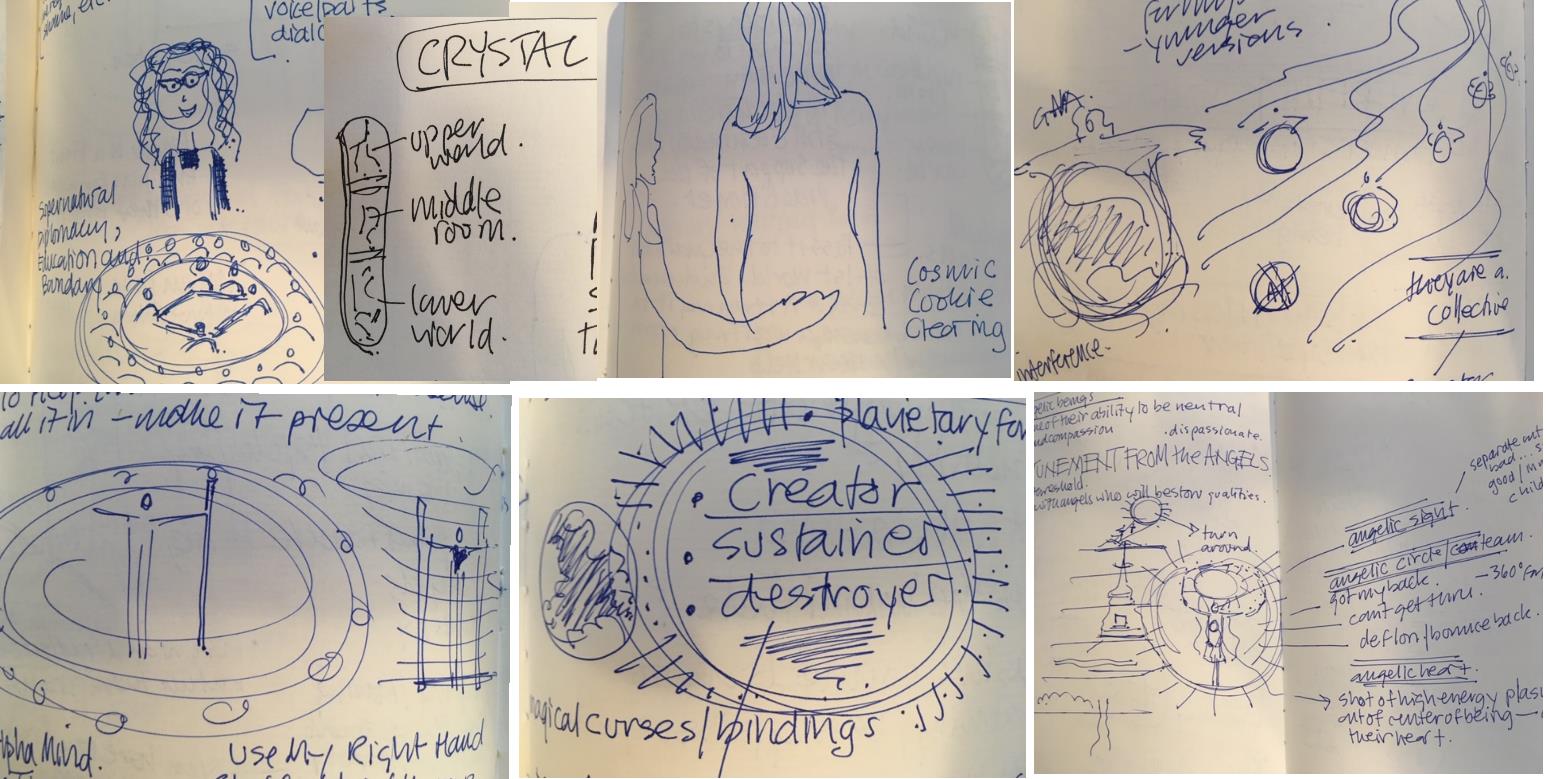 voice/parts
supernatural
Diplomacy,
Education and
CRYSTAL
upper
world.
middle
room.
lower
world.
Cosmic
Cookie
Clearing
- younger
versions
they are a
collective
interference.
all it in - make it present
Alpha Mind.
Use My Right Hand
planetary
Creator
sustainer
destroyer
magical curses/bindings
angelic beings
of their ability to be neutral
and compassion
. dispassionate.
FROM the ANGELS
threshold.
with angels who will bestow qualities.
turn
around
separate out
bad
good /
angelic sight
angelic circle / team.
got my back.
- 360°
can't get thru.
deflon / bounce back.
angelic heart.
shot of high energy
out of center of being
their heart.